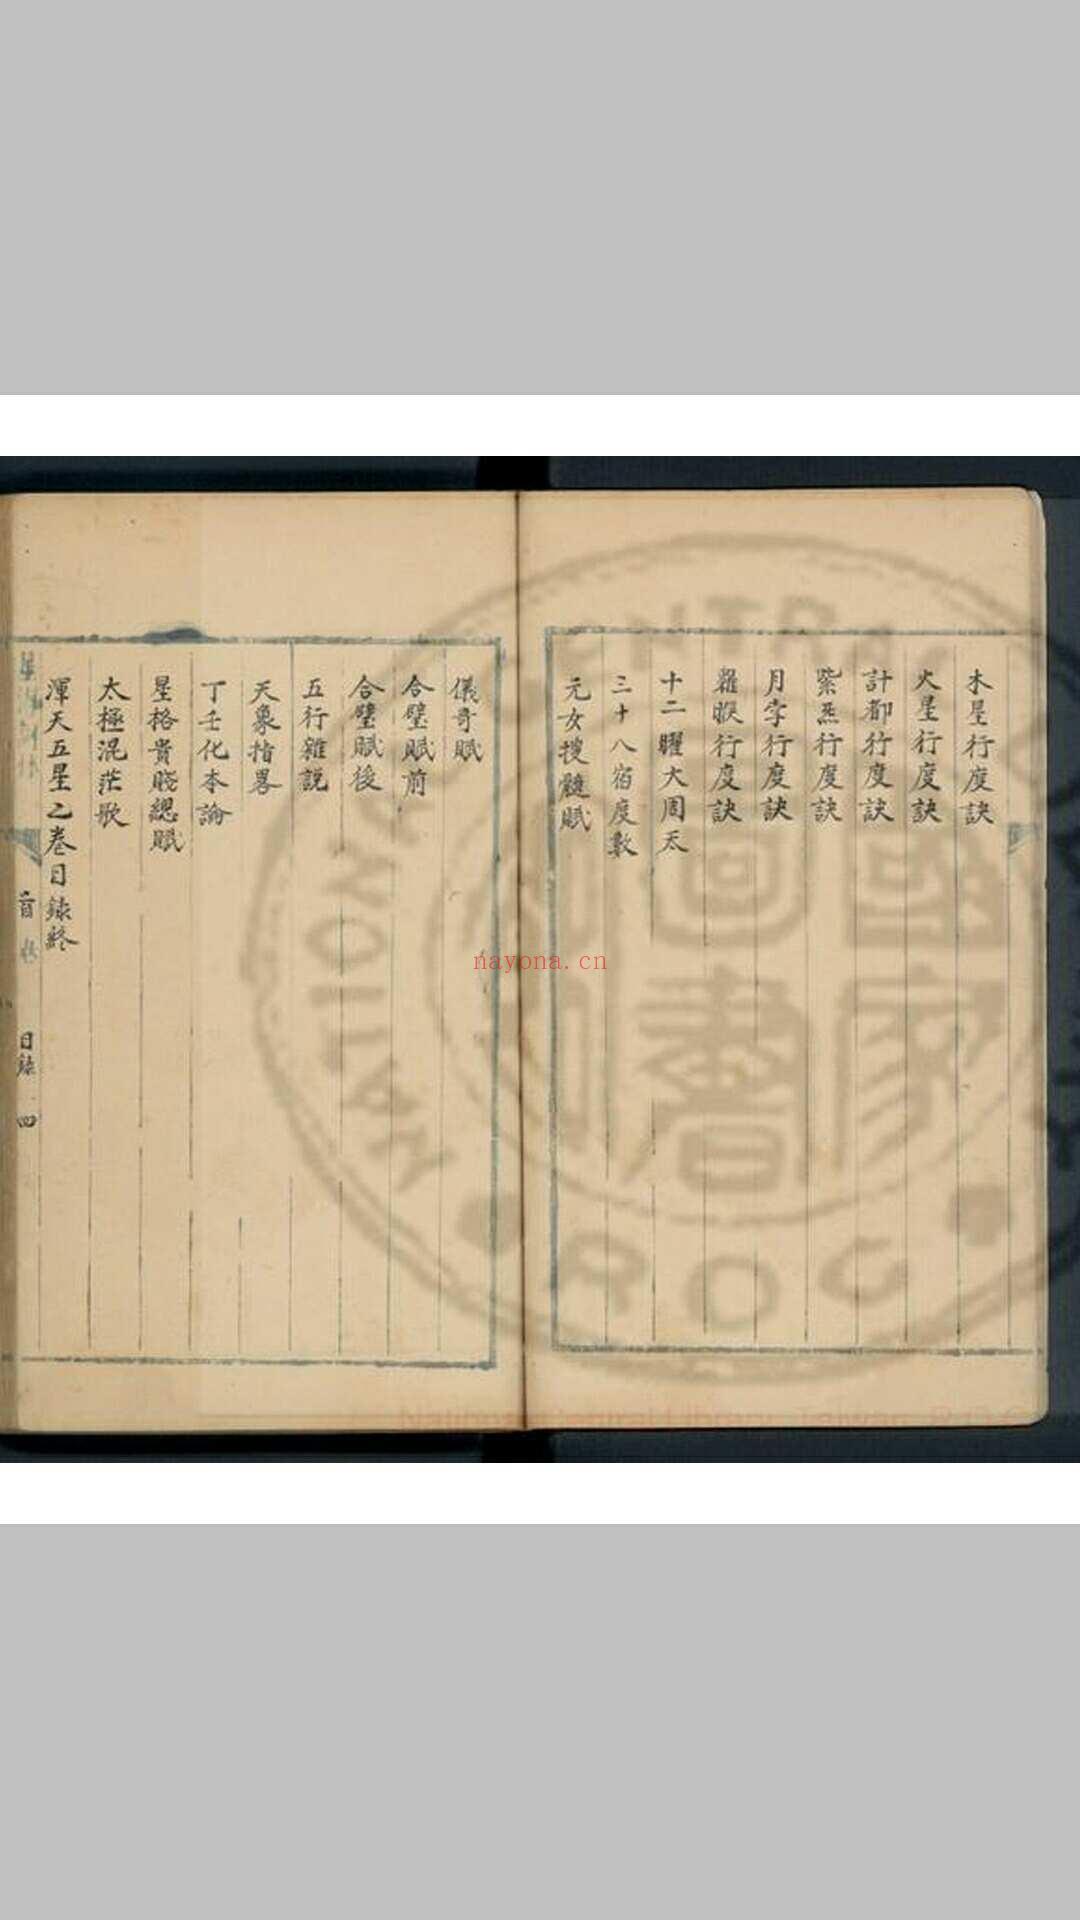 木星行度訣
火星行度訣
計都行度訣
紫炁行度訣
月孛行度訣
羅睺行度訣
十二曜大周天
二十八宿度數
元女搜髓賦
儀奇賦
合璧賦前
合璧賦後
五行雜説
天象指畧
丁壬化本論
星格貴賤總賦
太極混茫歌
渾天五星之卷目錄終
首卷
目錄
四
nayona.cn
National Central Library, Taiwan, R.O.C
國家圖書
NATIONAL CENTRAL
R O C